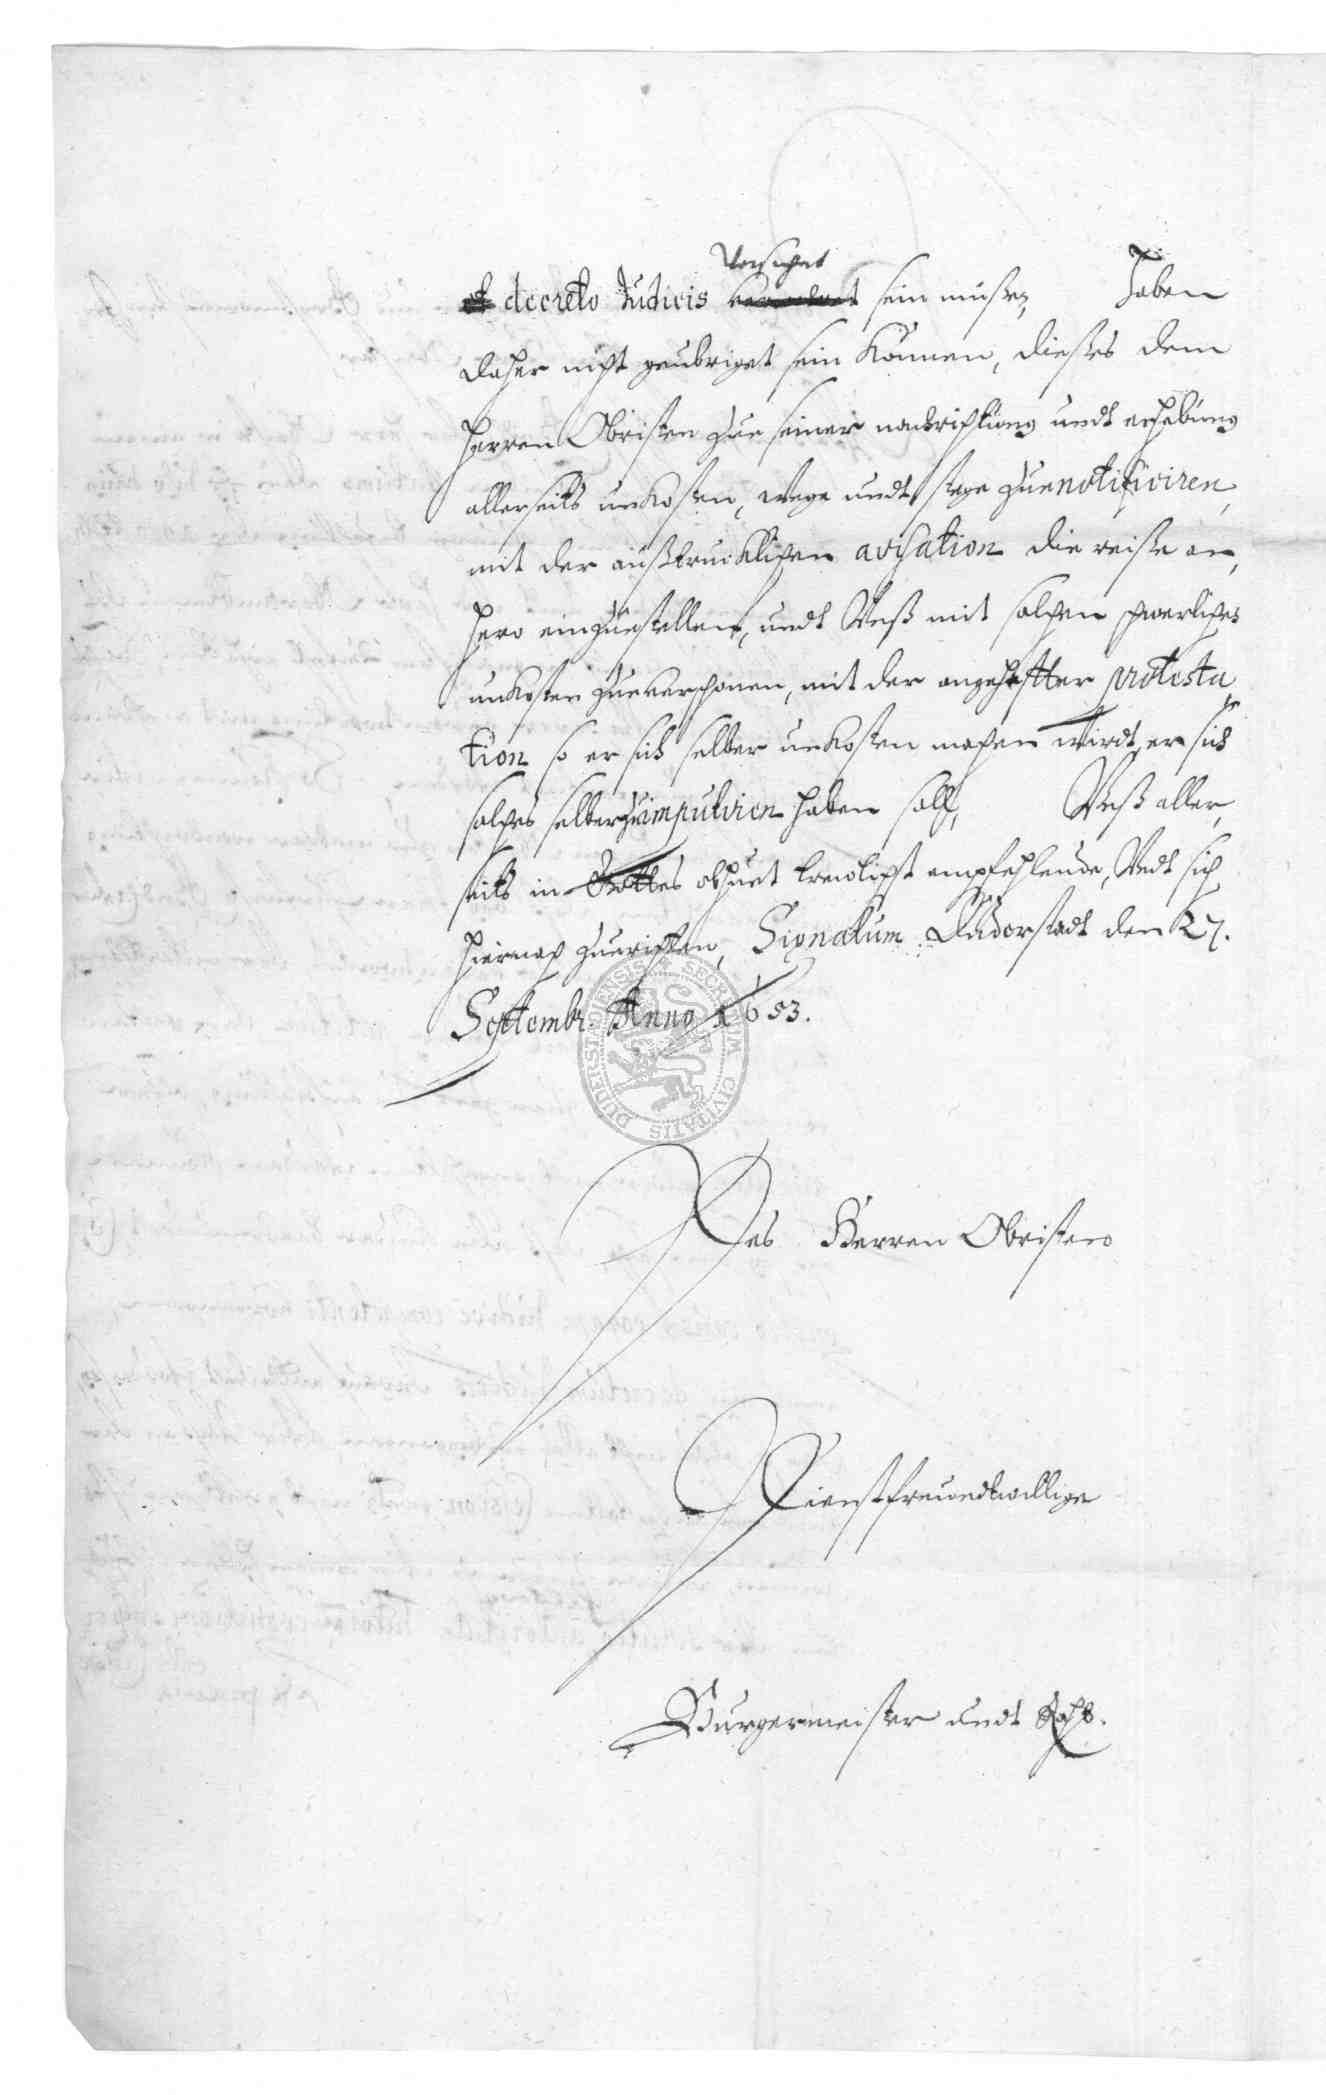 versichert
et decreto Judicis sein mußen, Haben
daher nicht geubriget sein können, dießes dem
Herren Obristen zue seiner nachrichtung undt erhebung
allerseits unkosten, wege undt stege zue notificiren,
mit der außtrucklichen avisation die reiße an,
hero einzuestellen, undt Unß mit solchen schwerlichen
unkosten zueverschonen, mit der angehefftter protesta
tion so er sich selber unkosten machen wirdt, er sich
solches selber zu imputiren haben soll, Unß aller,
seits in Gottes obhuet trewlichst empfehlende, Undt sich
hiernach zuerichten, Signatum Duderstadt den 27.
Septembr. Anno 1653.
DUDERSTADENSIS SECRETUM CIVITATIS
Des Herren Obristen
Dienstfreundtwillige
Burgermeister undt Rath.